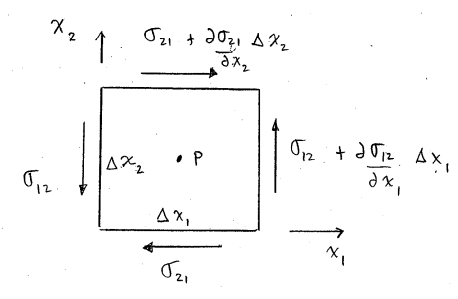 x₂
σ₂₁ + ∂σ₂₁/∂x₂ Δx₂
σ₁₂
Δx₂
P
σ₁₂ + ∂σ₁₂/∂x₁ Δx₁
Δx₁
x₁
σ₂₁